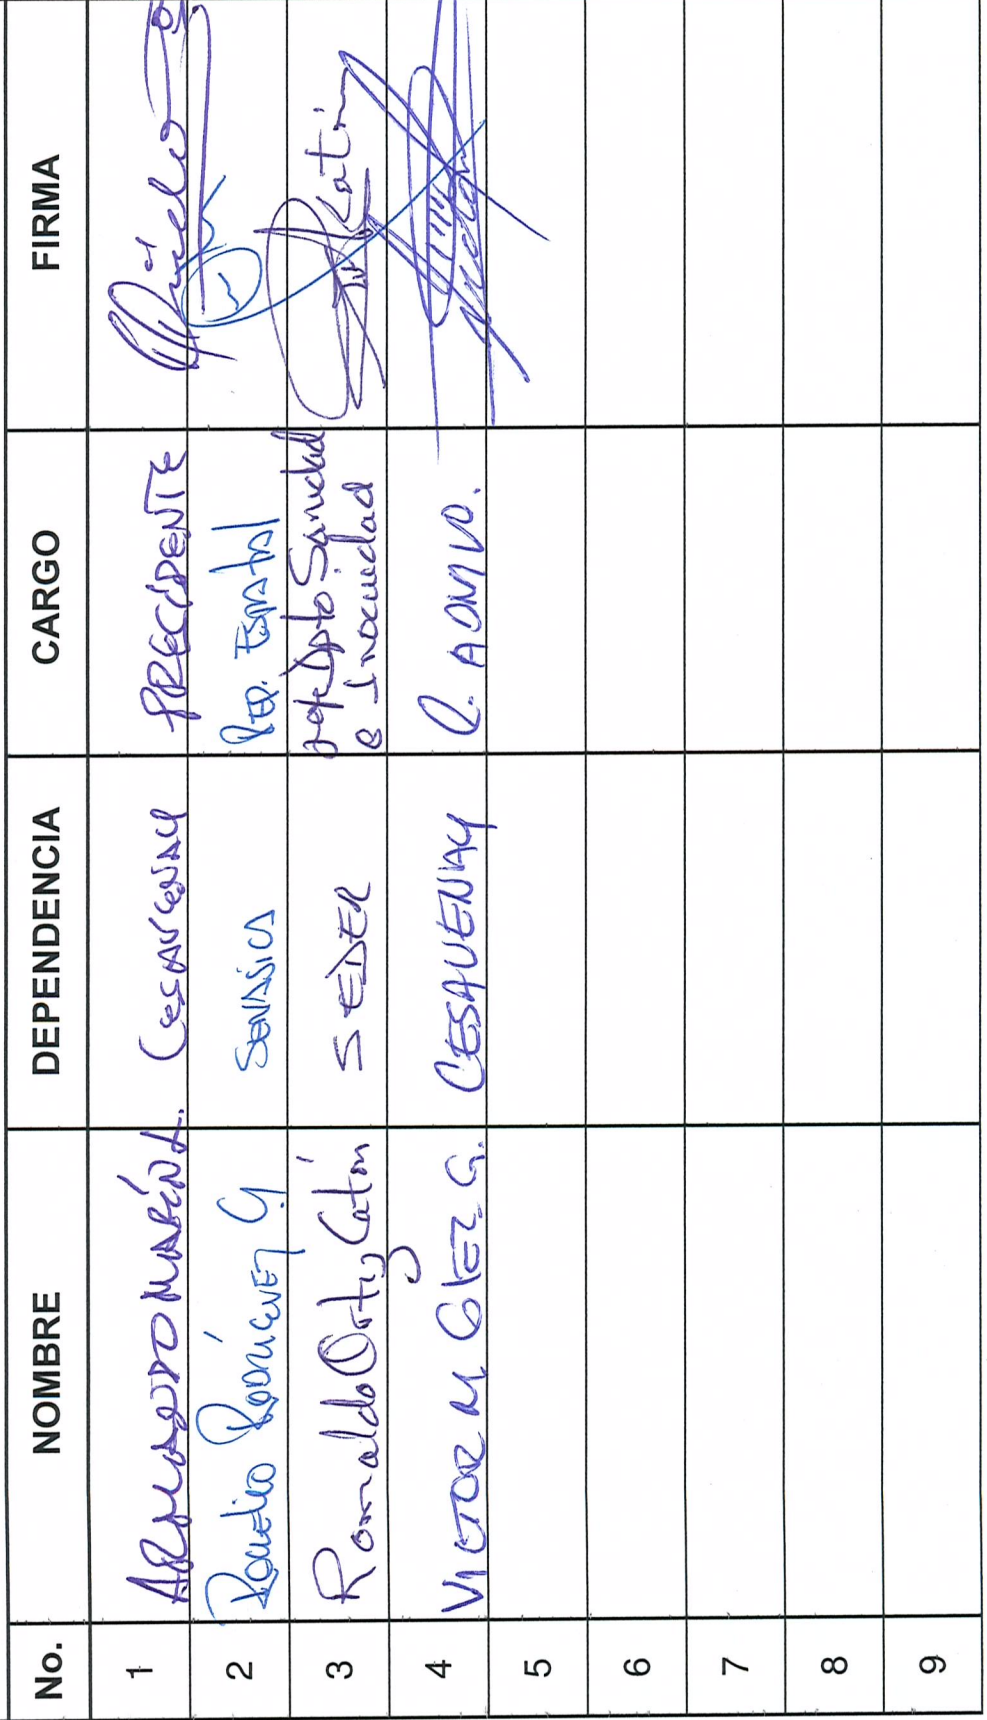 No. NOMBRE DEPENDENCIA CARGO FIRMA
1 ARMANDO MARÍN L. CESAVENAY PRECIDENTE
2 ROMELIO RODRÍGUEZ G SENASICA REP. ESTATAL
3 Romaldo Ortiz Catín SEDER Jefe Dpto Sanidad
e Inocuidad
4 VICTOR M GLEZ G. CESAVENAY C. ADMVO.
5
6
7
8
9